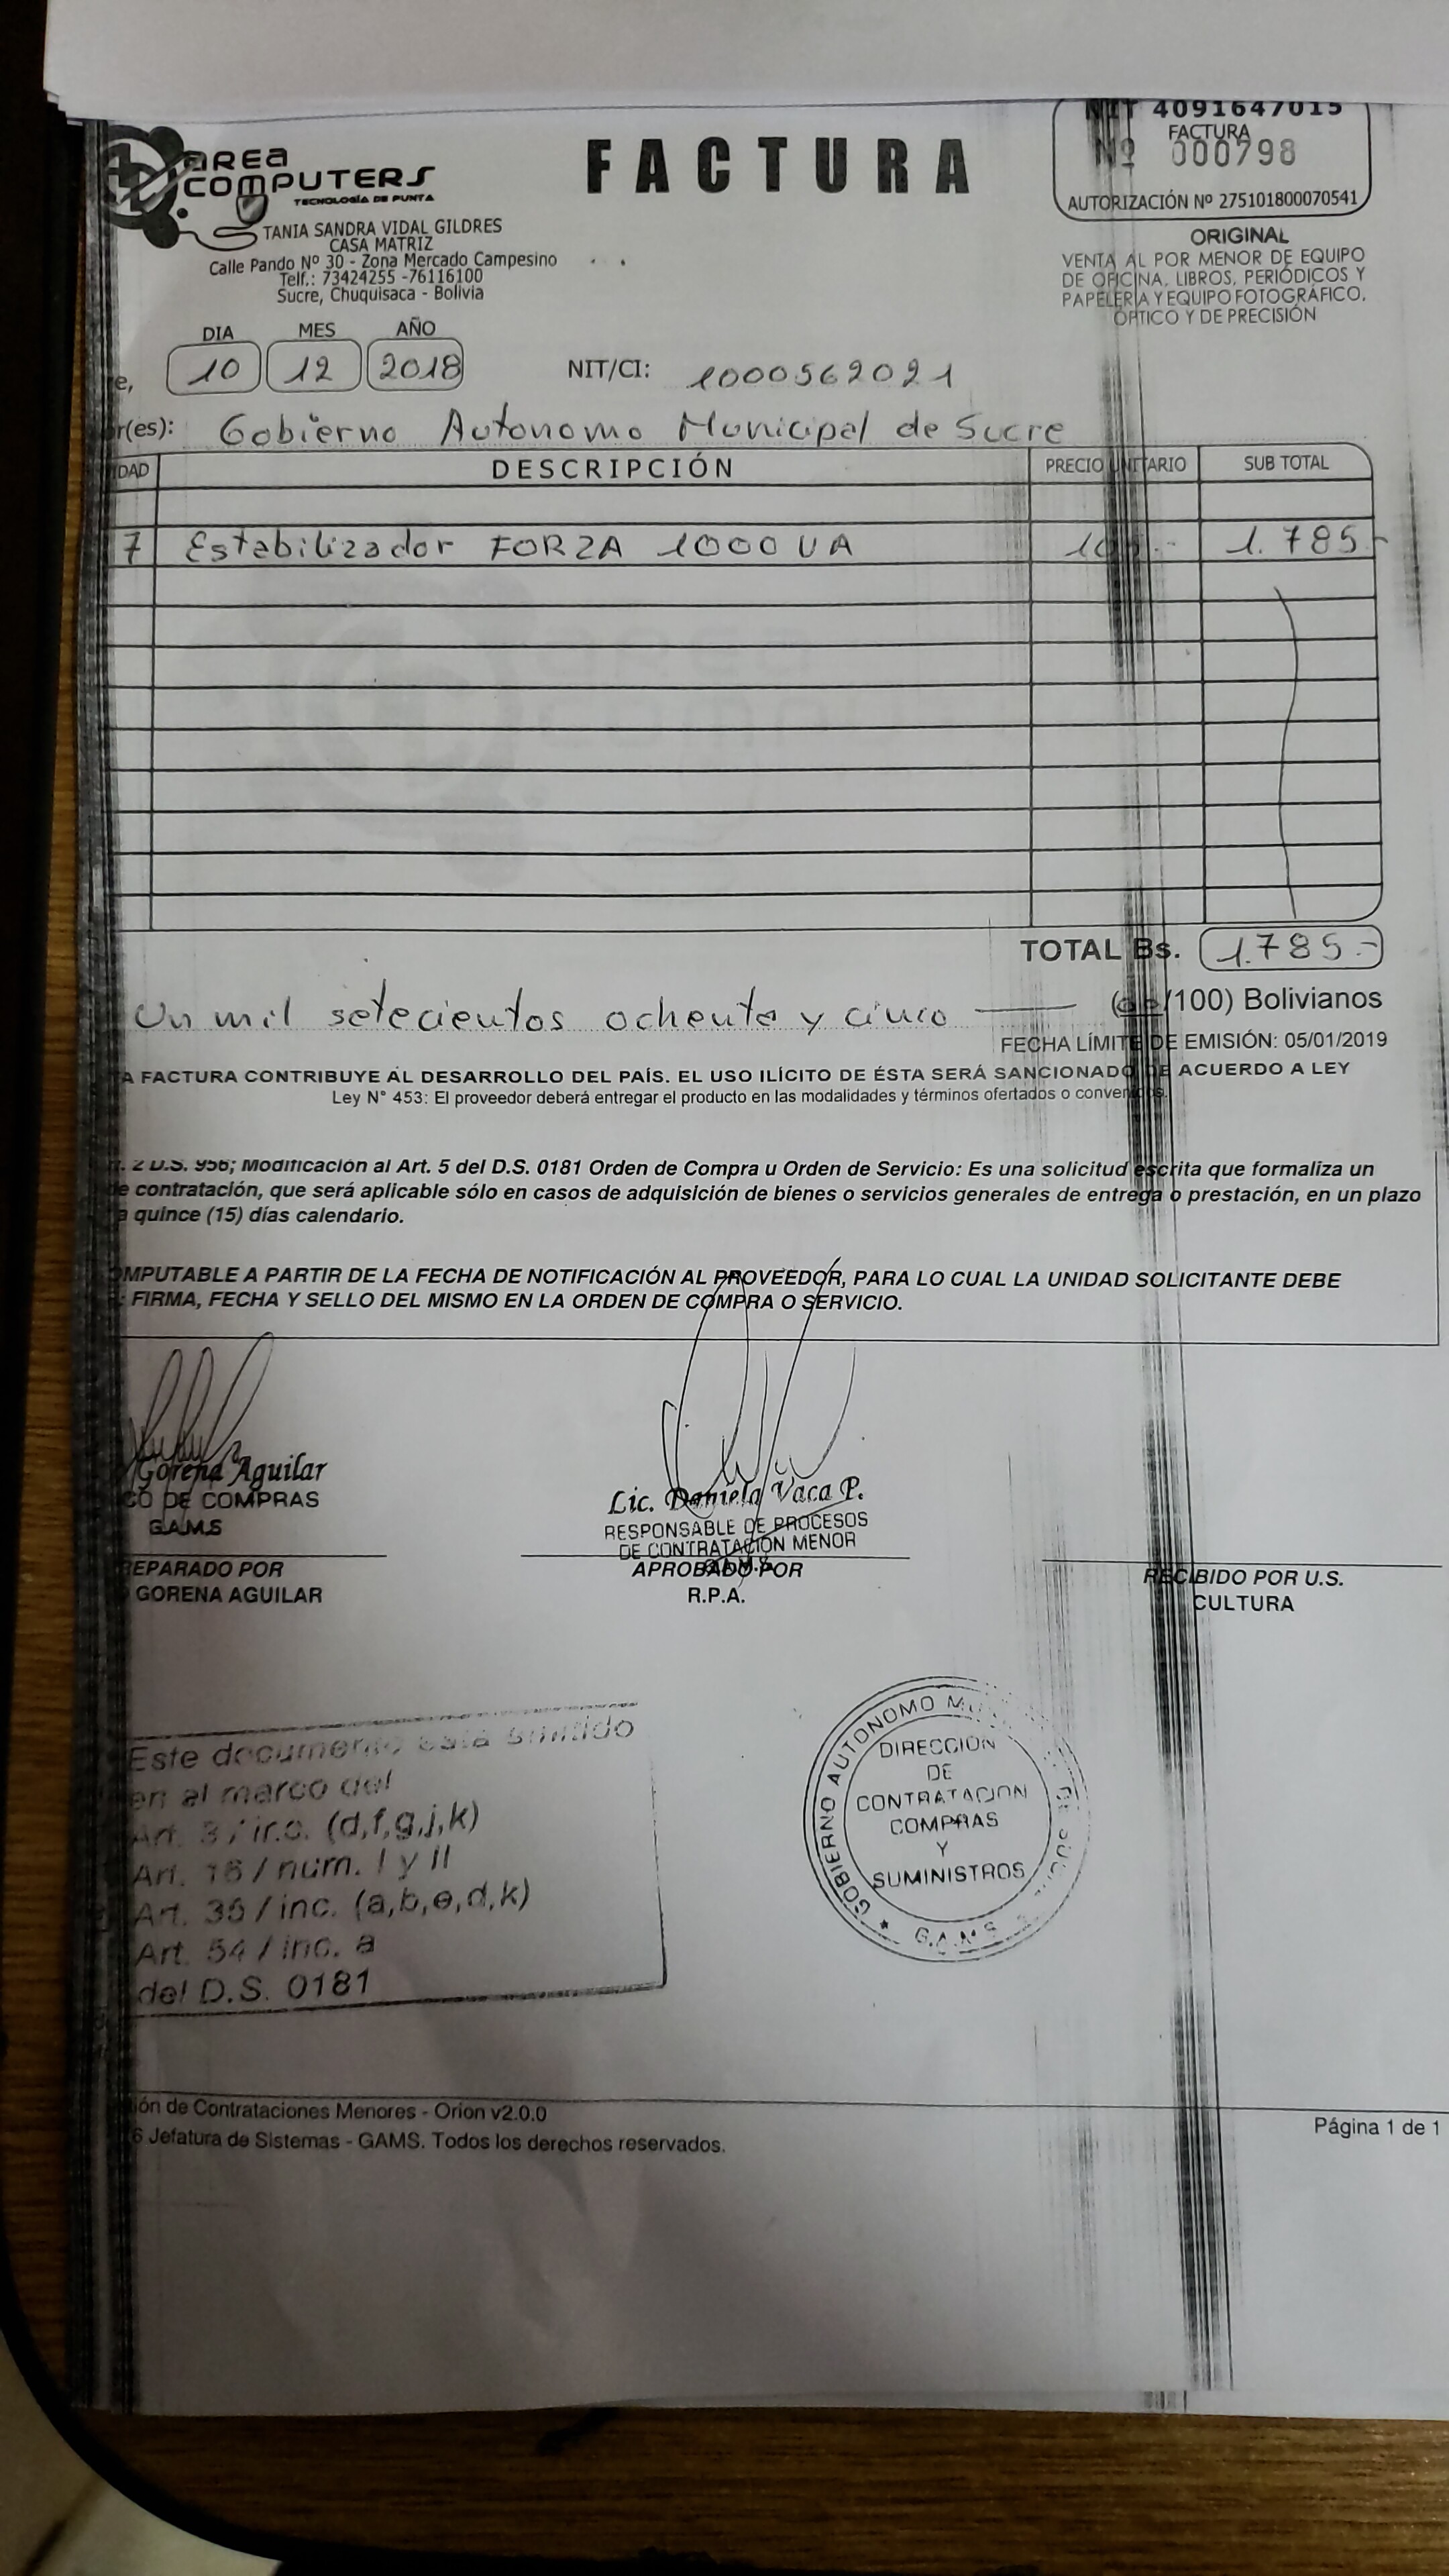 NIT 4091647015
FACTURA
Nº 000798
AUTORIZACIÓN Nº 275101800070541
AREA
COMPUTERS
TECNOLOGÍA DE PUNTA
FACTURA
TANIA SANDRA VIDAL GILDRES
CASA MATRIZ
Calle Pando Nº 30 - Zona Mercado Campesino
Telf.: 73424255 -76116100
Sucre, Chuquisaca - Bolivia
ORIGINAL
VENTA AL POR MENOR DE EQUIPO
DE OFICINA, LIBROS, PERIÓDICOS Y
PAPELERIA Y EQUIPO FOTOGRÁFICO,
ÓPTICO Y DE PRECISIÓN
DIA MES AÑO
e, 10 12 2018 NIT/CI: 1000562021
r(es): Gobierno Autonomo Municipal de Sucre
DAD DESCRIPCIÓN PRECIO UNITARIO SUB TOTAL
7 Estabilizador FORZA 1000 VA 1.785-
TOTAL Bs. 1.785.-
Un mil setecientos ochenta y cinco (00/100) Bolivianos
FECHA LÍMITE DE EMISIÓN: 05/01/2019
A FACTURA CONTRIBUYE AL DESARROLLO DEL PAÍS. EL USO ILÍCITO DE ÉSTA SERÁ SANCIONADO DE ACUERDO A LEY
Ley N° 453: El proveedor deberá entregar el producto en las modalidades y términos ofertados o convenidos.
. 2 D.S. 956; Modificación al Art. 5 del D.S. 0181 Orden de Compra u Orden de Servicio: Es una solicitud escrita que formaliza un
e contratación, que será aplicable sólo en casos de adquisición de bienes o servicios generales de entrega o prestación, en un plazo
a quince (15) días calendario.
OMPUTABLE A PARTIR DE LA FECHA DE NOTIFICACIÓN AL PROVEEDOR, PARA LO CUAL LA UNIDAD SOLICITANTE DEBE
: FIRMA, FECHA Y SELLO DEL MISMO EN LA ORDEN DE COMPRA O SERVICIO.
Gorena Aguilar
CO DE COMPRAS
G.A.M.S
EPARADO POR
GORENA AGUILAR
Lic. Daniela Vaca P.
RESPONSABLE DE PROCESOS
DE CONTRATACIÓN MENOR
G.A.M.S.
APROBADO POR
R.P.A.
RECIBIDO POR U.S.
CULTURA
Este documento está emitido
en al marco del
Art. 3 / inc. (d,f,g,j,k)
Art. 16 / num. I y II
Art. 35 / inc. (a,b,e,d,k)
Art. 54 / inc. a
del D.S. 0181
GOBIERNO AUTONOMO
DIRECCIÓN
DE
CONTRATACION
COMPRAS
Y
SUMINISTROS
G.A.M.S
ión de Contrataciones Menores - Orion v2.0.0
6 Jefatura de Sistemas - GAMS. Todos los derechos reservados.
Página 1 de 1